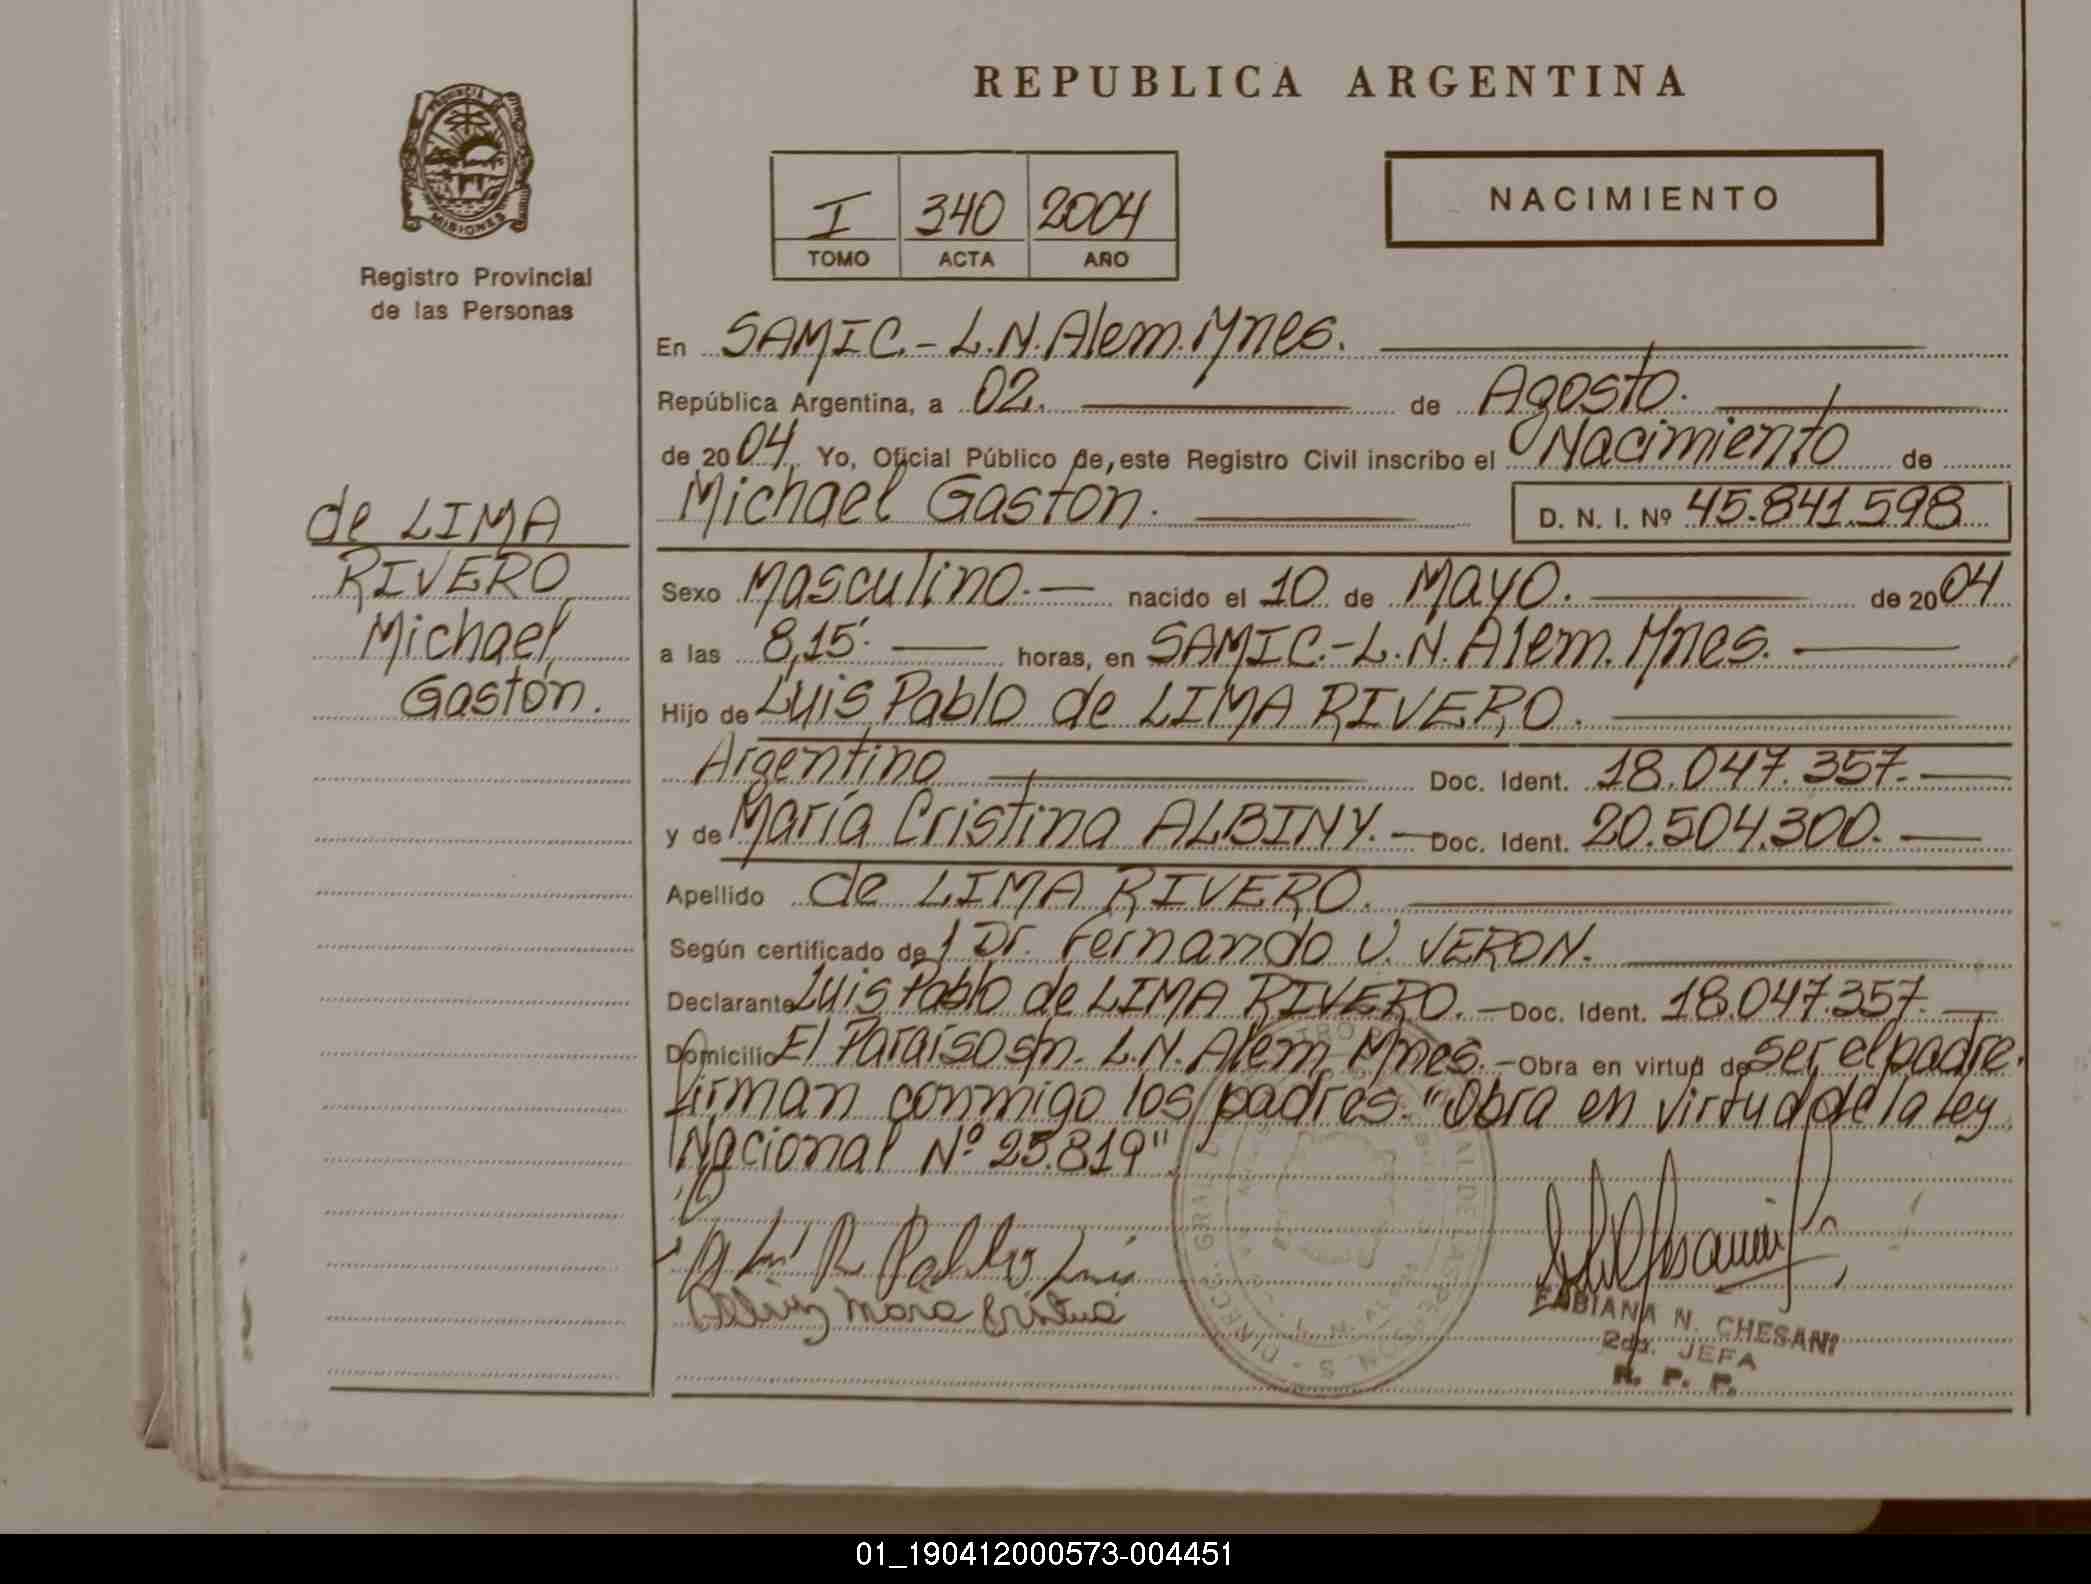 REPUBLICA ARGENTINA
PROVINCIA
MISIONES
Registro Provincial
de las Personas
I 340 2004
TOMO ACTA AÑO
NACIMIENTO
En SAMIC.- L.N. Alem. Mnes.
República Argentina, a 02. de Agosto.
de 2004 Yo, Oficial Público de este Registro Civil inscribo el Nacimiento de
Michael Gaston. D. N. I. Nº 45.841.598
de LIMA
RIVERO
Michael
Gastón.
Sexo Masculino.- nacido el 10 de Mayo. de 2004
a las 8,15'. horas, en SAMIC.-L.N. Alem. Mnes.
Hijo de Luis Pablo de LIMA RIVERO.
Argentino Doc. Ident. 18.047.357.-
y de María Cristina ALBINY.- Doc. Ident. 20.504.300.-
Apellido de LIMA RIVERO.
Según certificado de Dr. Fernando V. VERON.
Declarante Luis Pablo de LIMA RIVERO.- Doc. Ident. 18.047.357.-
Domicilio El Paraíso s/n. L.N. Alem Mnes.- Obra en virtud de ser el padre.
Firman conmigo los padres. "Obra en virtud de la Ley
Nacional Nº 25.819"
Pablo Luis
Albiny Maria Cristina
FABIANA N. CHESANI
2da. JEFA
R. P. P.
01_190412000573-004451